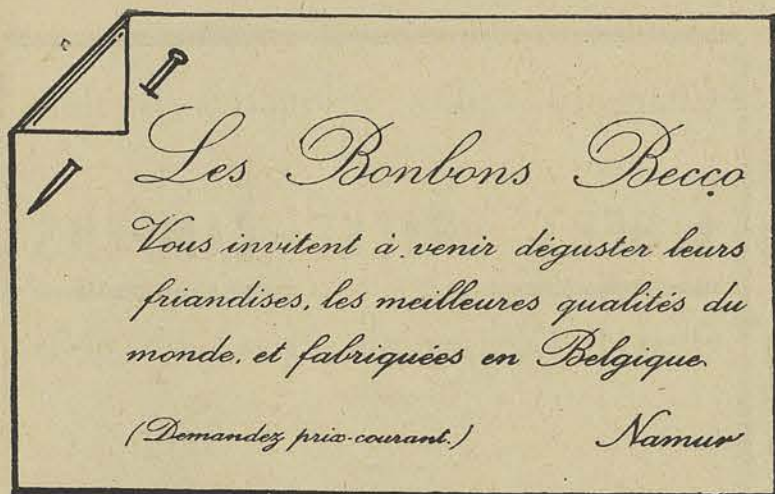 Les Bonbons Becco
Vous invitent à venir déguster leurs
friandises, les meilleures qualités du
monde, et fabriquées en Belgique.
(Demandez prix-courant.) Namur